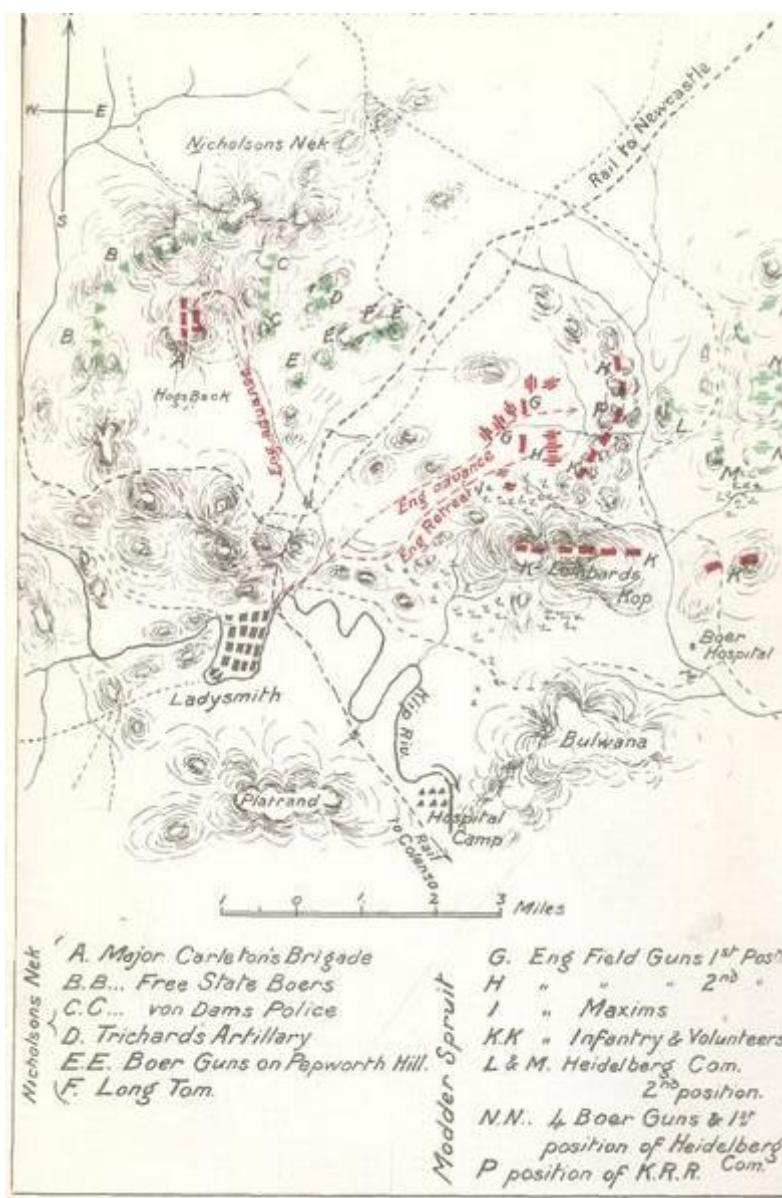 W E
S
Nicholsons Nek
Rail to Newcastle
B
C
D
B
C
F
E
E
E
A
Hogs Back
Eng advance
K
G
P
G
H
K
L
M
N
Eng advance
Eng Retreat
K
K
Lombards
Kop
K
Boer
Hospital
Ladysmith
Klip Riv
Bulwana
Platrand
Hospital
Camp
Rail
to Colenso
1 0 1 2 3 Miles
Nicholsons Nek
A. Major Carleton's Brigade
B.B... Free State Boers
C.C... von Dams Police
D. Trichard's Artillary
E.E. Boer Guns on Pepworth Hill.
F. Long Tom.
Modder Spruit
G. Eng Field Guns 1st Posn
H " " " 2nd "
I " Maxims
K.K " Infantry & Volunteers
L & M. Heidelberg Com.
2nd position.
N.N.. 4 Boer Guns & 1st
position of Heidelberg
Com.
P position of K.R.R.